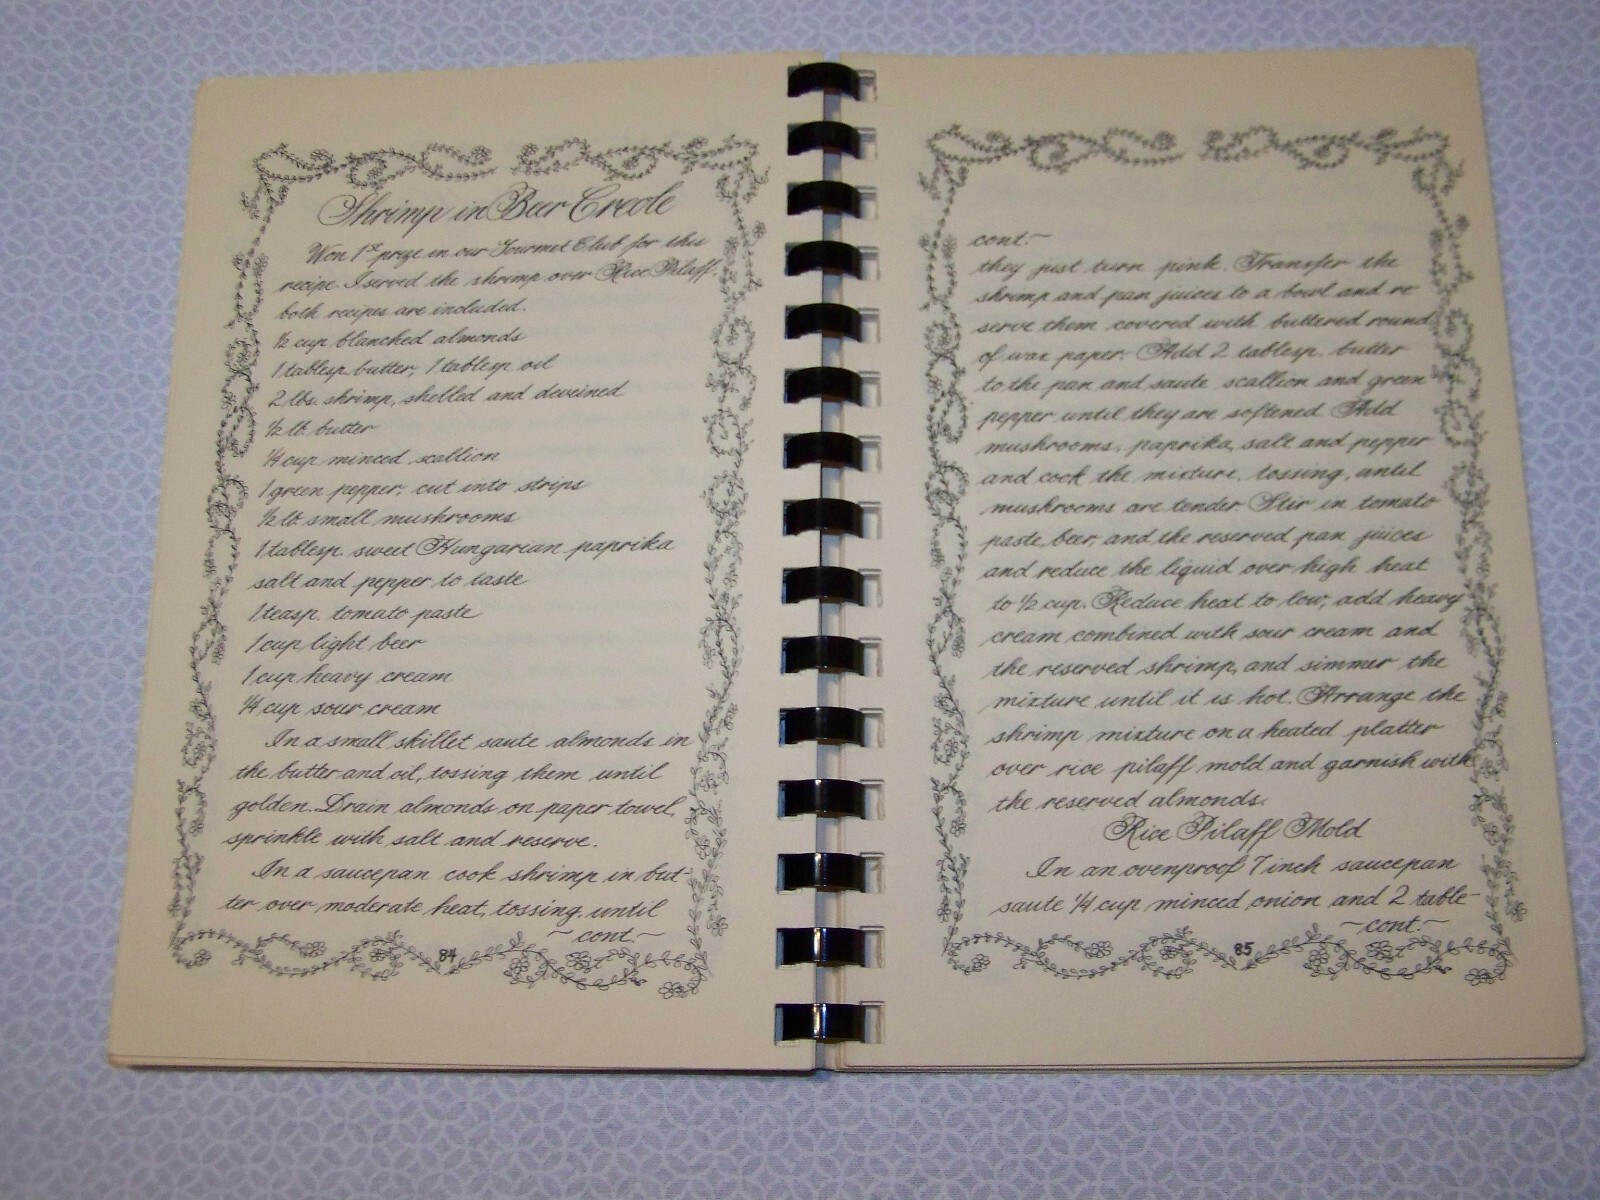 Shrimp in Beer Creole
Won 1st prize in our Gourmet Club for this
recipe. I served the shrimp over Rice Pilaff.
both recipes are included.
½ cup blanched almonds
1 tablesp. butter, 1 tablesp. oil
2 lbs. shrimp, shelled and deveined
½ lb. butter
¼ cup minced scallion
1 green pepper, cut into strips
½ lb small mushrooms
1 tablesp. sweet Hungarian paprika
salt and pepper to taste
1 teasp. tomato paste
1 cup light beer
1 cup heavy cream
¼ cup sour cream
In a small skillet saute almonds in
the butter and oil, tossing them until
golden. Drain almonds on paper towel,
sprinkle with salt and reserve.
In a saucepan cook shrimp in but-
ter over moderate heat, tossing, until
~ cont. ~
84
cont. ~
they just turn pink. Transfer the
shrimp and pan juices to a bowl and re
serve them covered with buttered round
of wax paper. Add 2 tablesp. butter
to the pan and saute scallion and green
pepper until they are softened. Add
mushrooms, paprika, salt and pepper
and cook the mixture, tossing, until
mushrooms are tender. Stir in tomato
paste, beer, and the reserved pan juices
and reduce the liquid over high heat
to ½ cup. Reduce heat to low, add heavy
cream combined with sour cream and
the reserved shrimp, and simmer the
mixture until it is hot. Arrange the
shrimp mixture on a heated platter
over rice pilaff mold and garnish with
the reserved almonds.
Rice Pilaff Mold
In an ovenproof 7 inch saucepan
saute ¼ cup minced onion and 2 table-
~ cont. ~
85